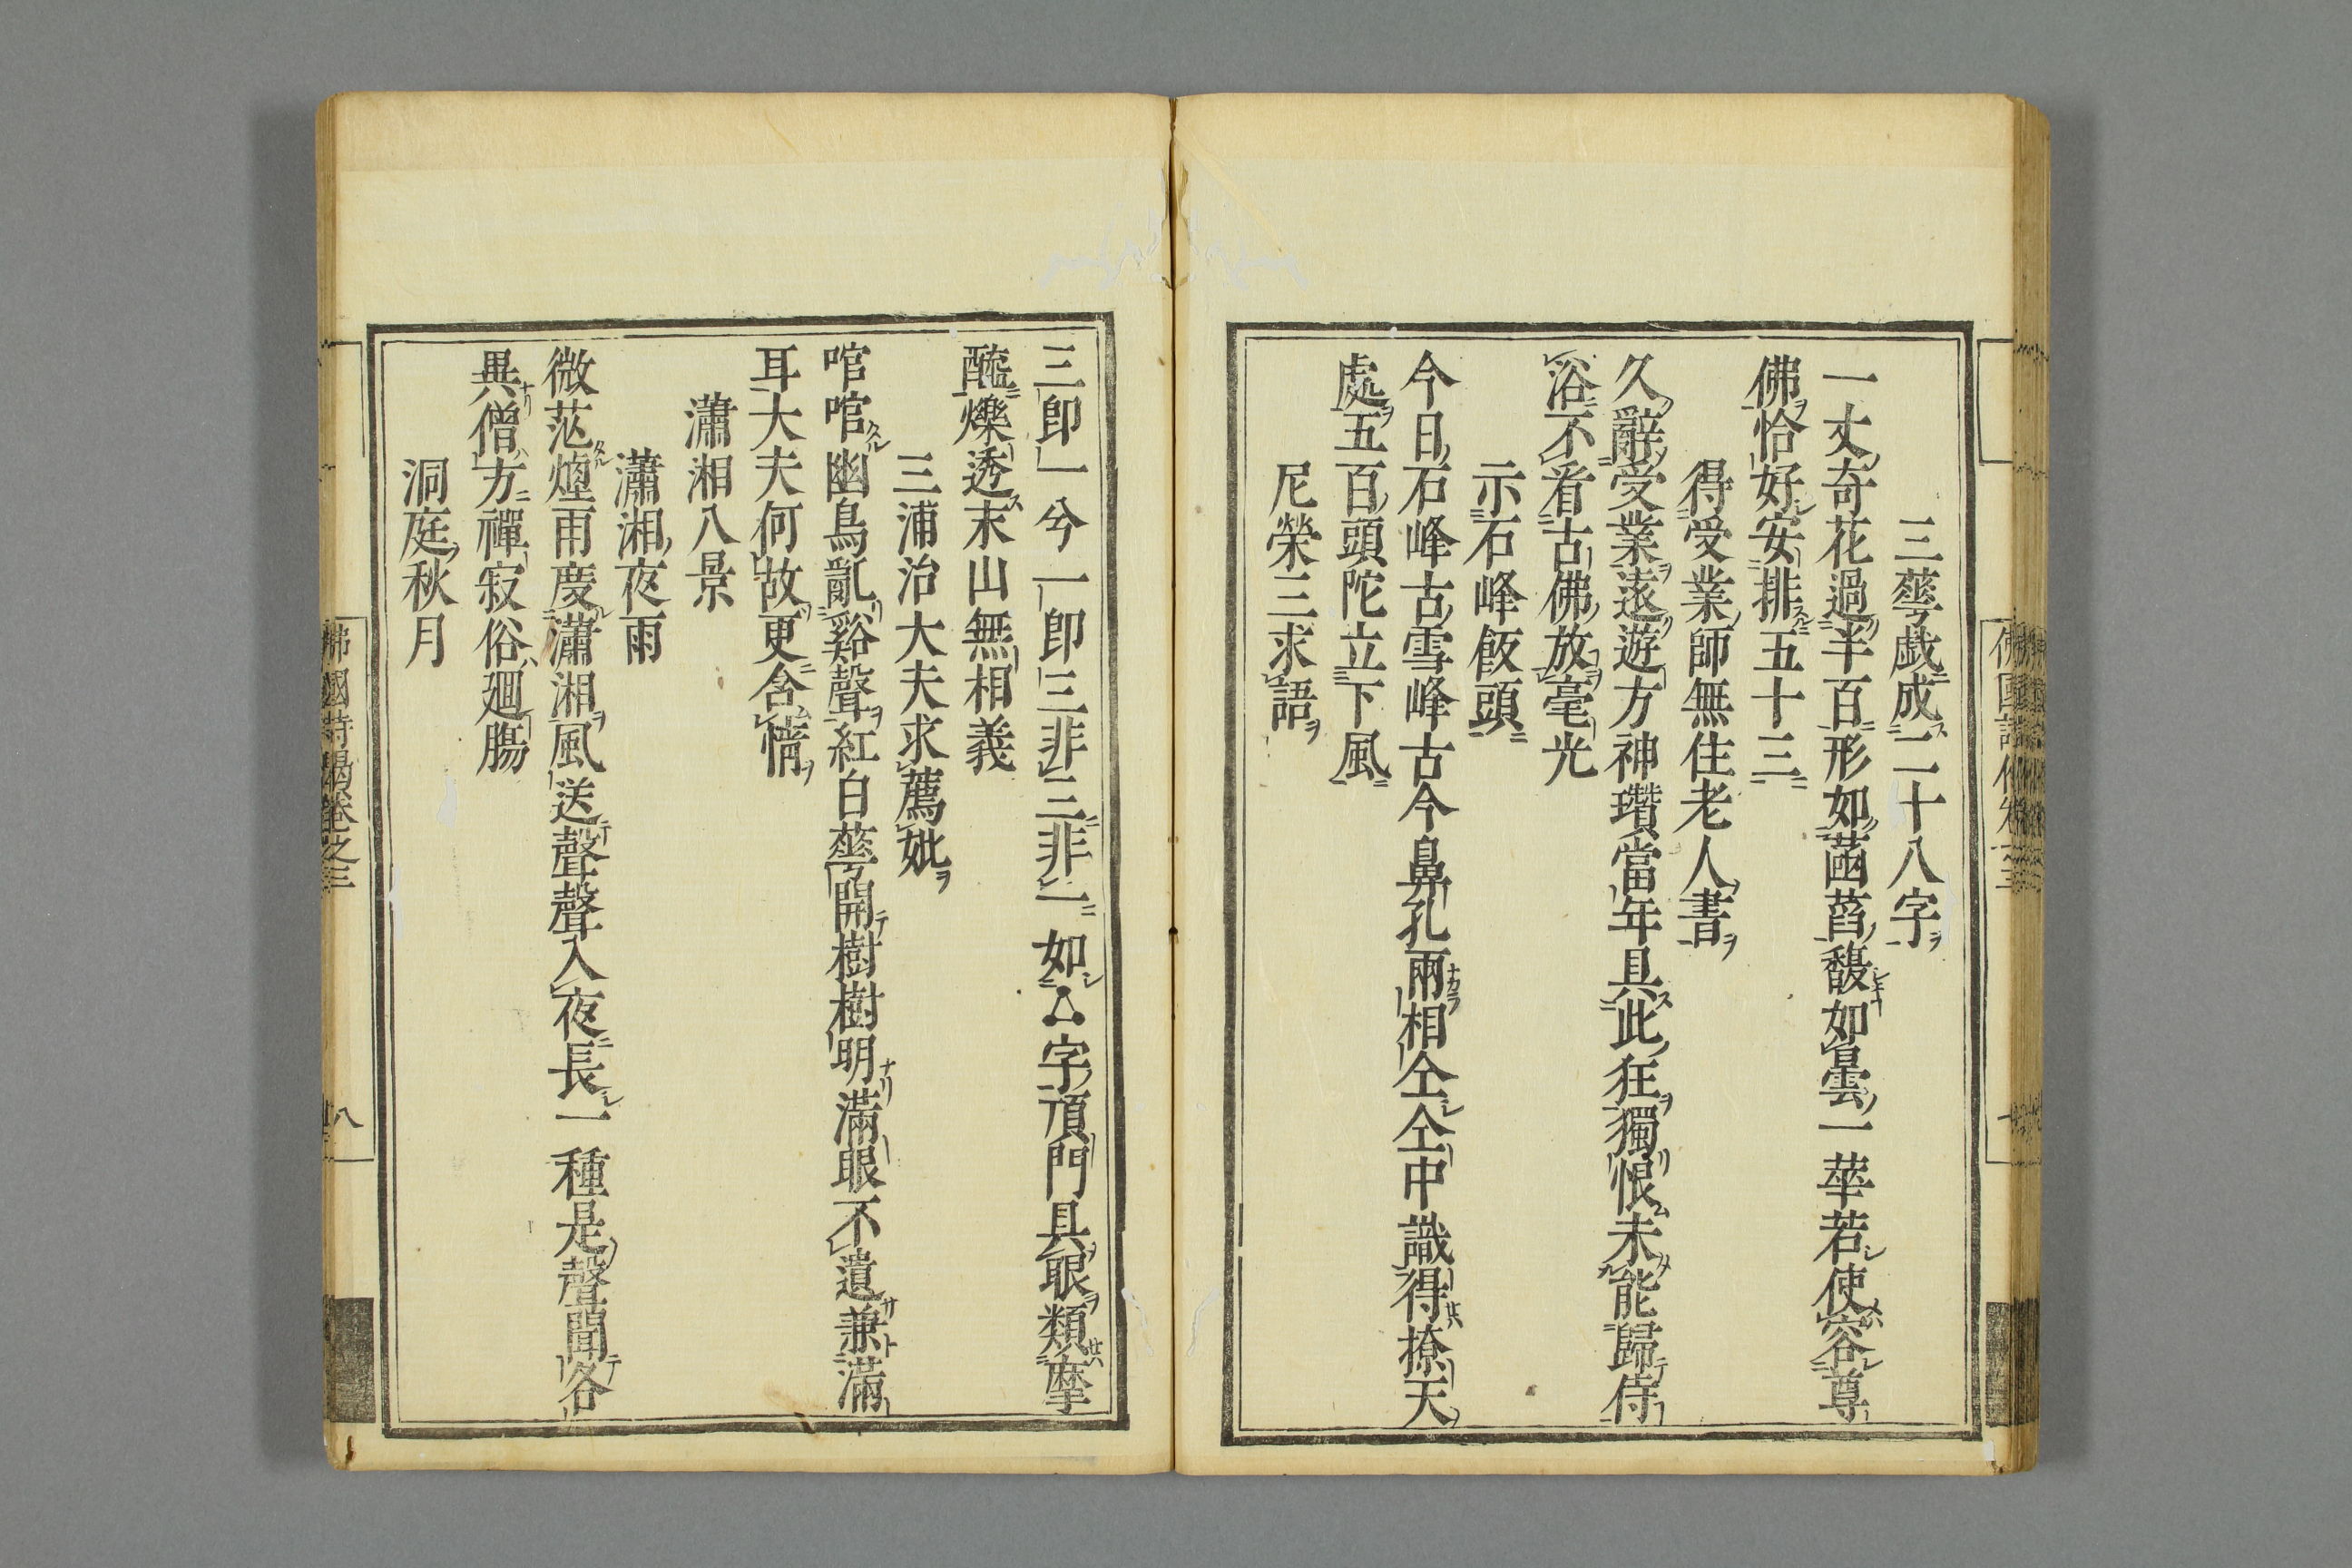 三蕚戯成二十八字
一丈奇花過半百形如菡萏馥如曇一華若使容尊
佛恰好安排五十三
得受業師無住老人書
久辭受業遠遊方神瓚當年具此狂獨恨未能歸侍
浴不看古佛放毫光
示石峰飯頭
今日石峰古雪峰古今鼻孔兩相仝仝中識得撩天
處五百頭陀立下風
尼榮三求語
三卽一兮一卽三非三非一如∴字頂門具眼類摩
醯爍透末山無相義
三浦治大夫求薦妣
喧喧幽鳥亂谿聲紅白蕚開樹樹明滿眼不遺兼滿
耳大夫何故更含情
瀟湘八景
瀟湘夜雨
微茫煙雨度瀟湘風送聲聲入夜長一種是聲聞各
異僧方禪寂俗廻腸
洞庭秋月
佛國詩偈卷之三
八